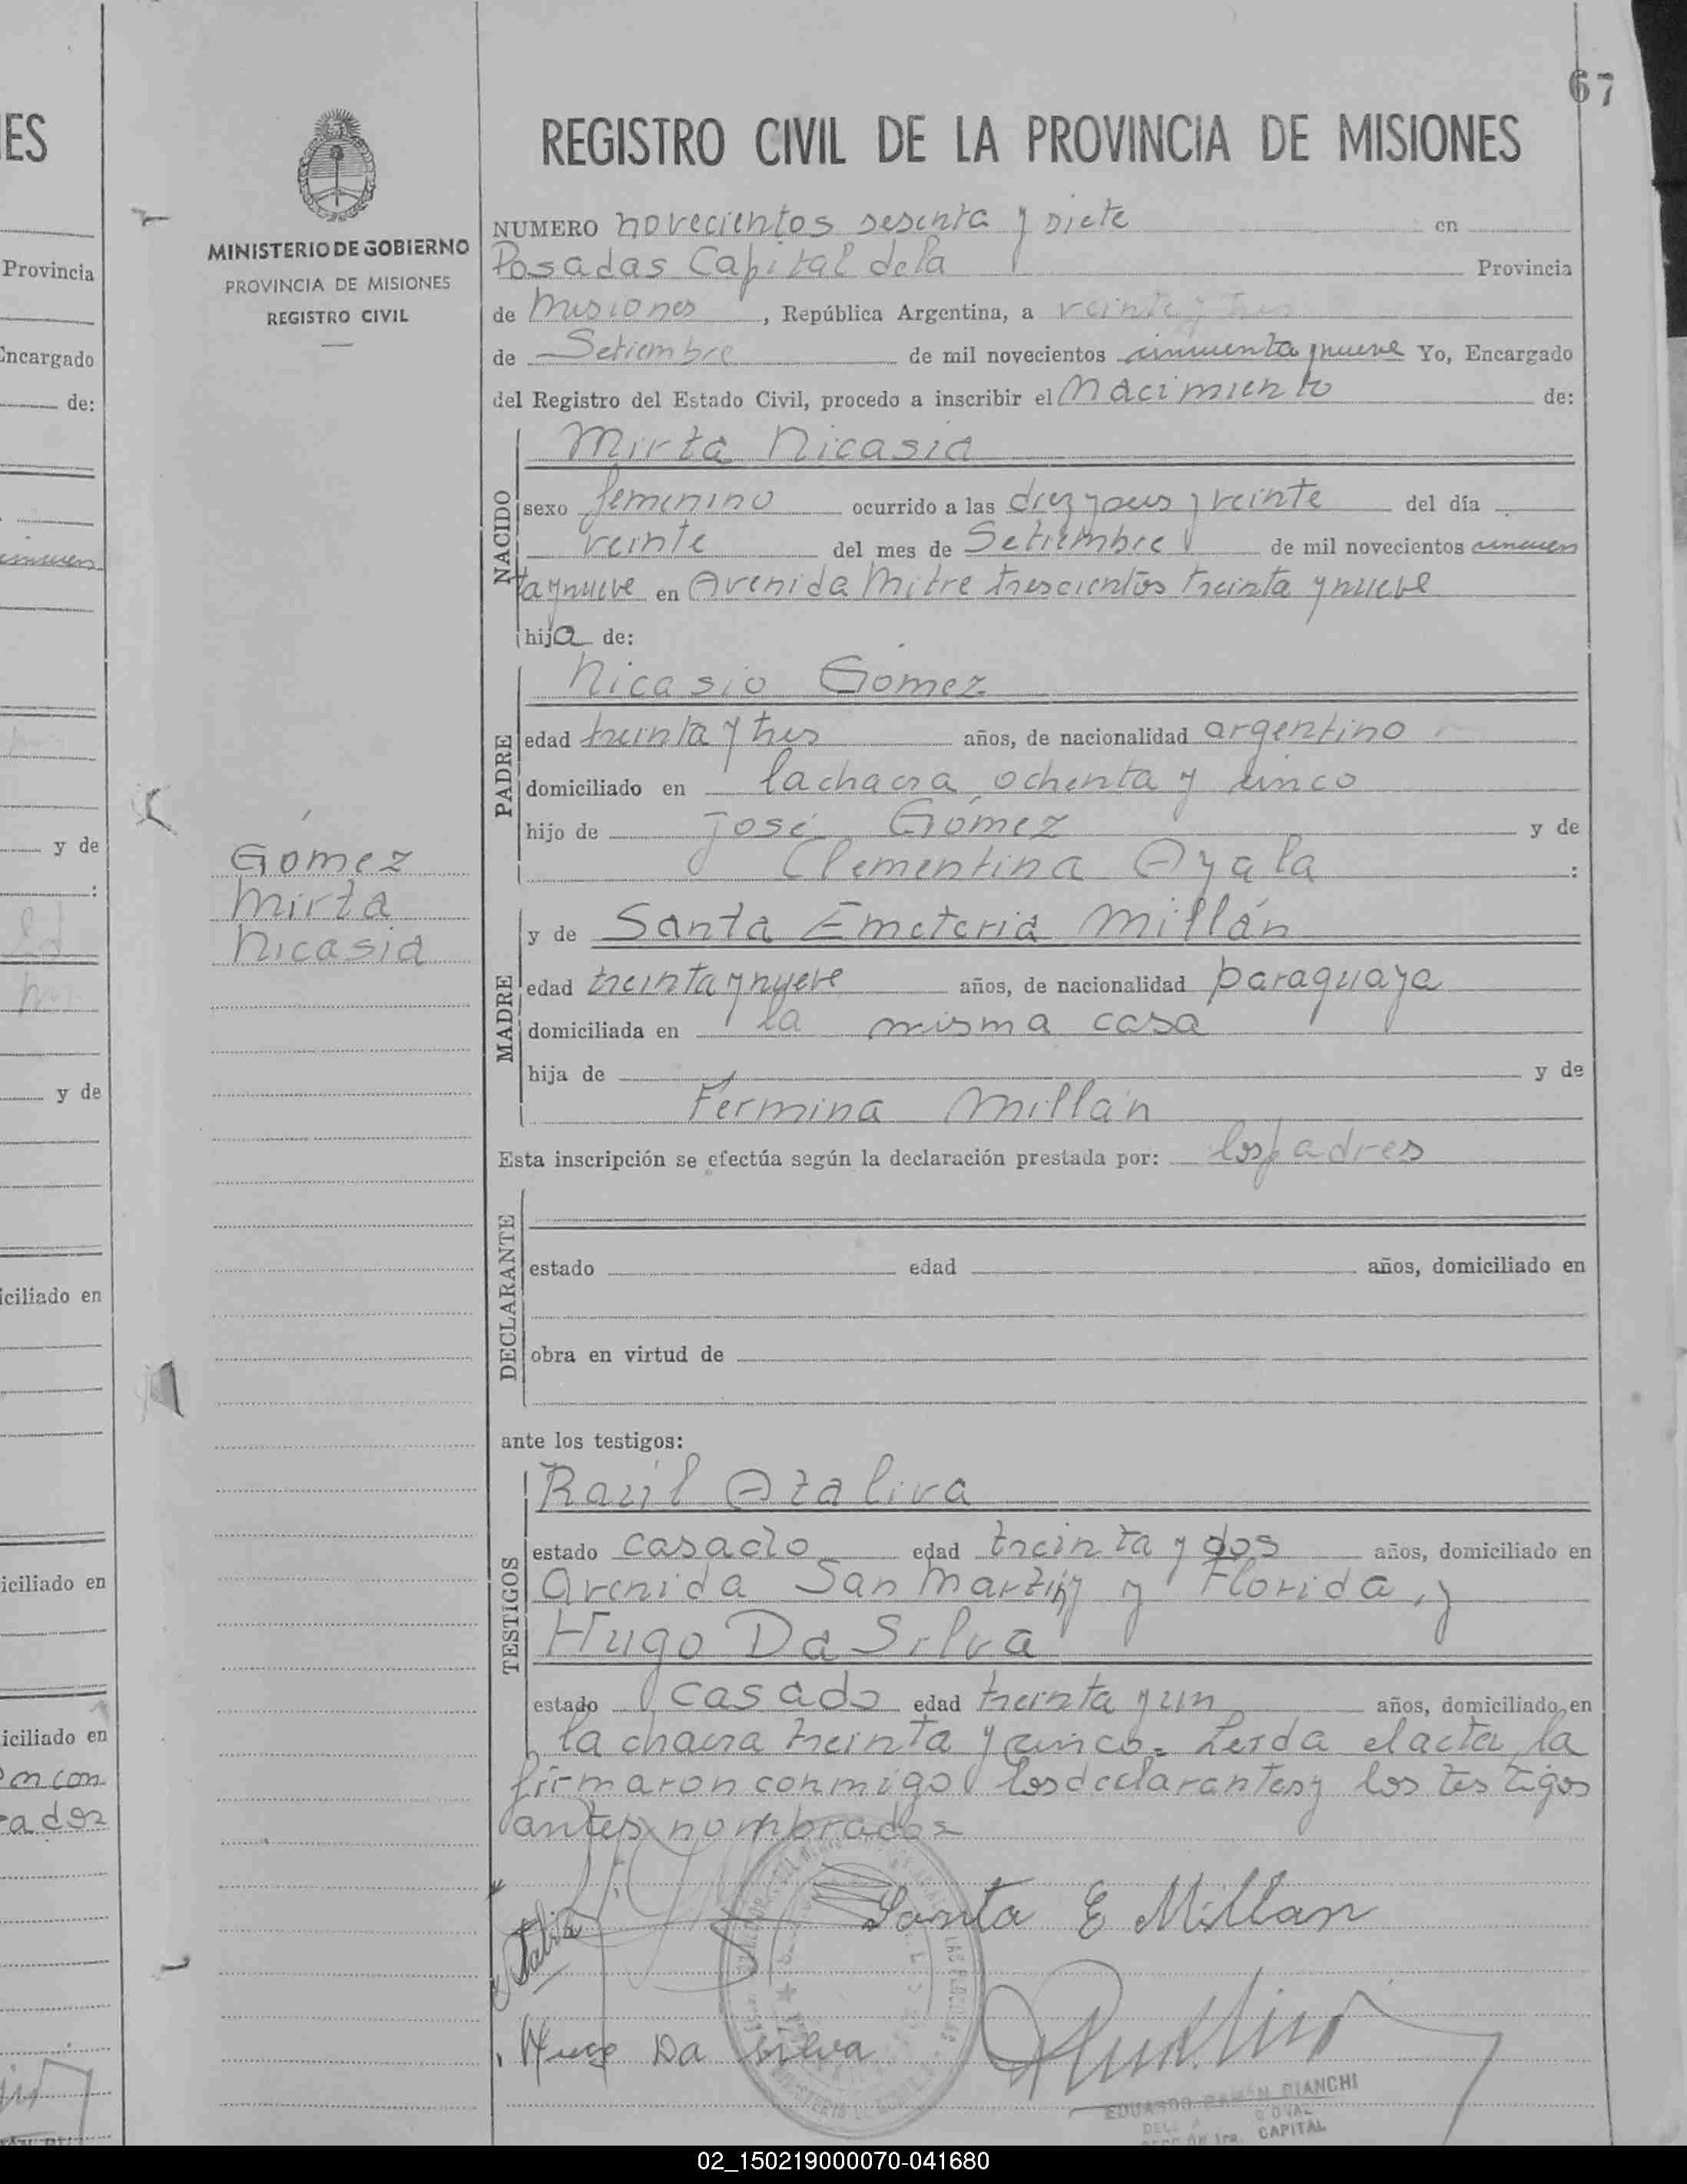 67
REGISTRO CIVIL DE LA PROVINCIA DE MISIONES
MINISTERIO DE GOBIERNO
PROVINCIA DE MISIONES
REGISTRO CIVIL
NUMERO novecientos sesenta y siete en
Posadas Capital de la Provincia
de Misiones, República Argentina, a veinte y tres
de Setiembre de mil novecientos cincuenta y nueve Yo, Encargado
del Registro del Estado Civil, procedo a inscribir el Nacimiento de:
NACIDO
Mirta Nicasia
sexo femenino ocurrido a las diez y seis y veinte del día
veinte del mes de Setiembre de mil novecientos cincuen
ta y nueve en Avenida Mitre trescientos treinta y nueve
hija de:
PADRE
Nicasio Gomez
edad treinta y tres años, de nacionalidad argentino
domiciliado en la chacra ochenta y cinco
hijo de José Gómez y de
Clementina Ayala :
Gomez
Mirta
Nicasia
MADRE
y de Santa Emeteria Millán
edad treinta y nueve años, de nacionalidad paraguaya
domiciliada en la misma casa
hija de y de
Fermina Millán
Esta inscripción se efectúa según la declaración prestada por: los padres
DECLARANTE
estado edad años, domiciliado en
obra en virtud de
ante los testigos:
TESTIGOS
Raúl Ataliva
estado casado edad treinta y dos años, domiciliado en
Avenida San Martín y Florida, y
Hugo Da Silva
estado casado edad treinta y un años, domiciliado en
la chacra treinta y cinco. Leida el acta, la
firmaron conmigo los declarantes y los testigos
antes nombrados
Santa E Millan
Hugo Da Silva
EDUARDO RAMÓN BIANCHI
CAPITAL
ES
Provincia
Encargado
de:
y de
:
y de
iciliado en
iciliado en
iciliado en
02_150219000070-041680